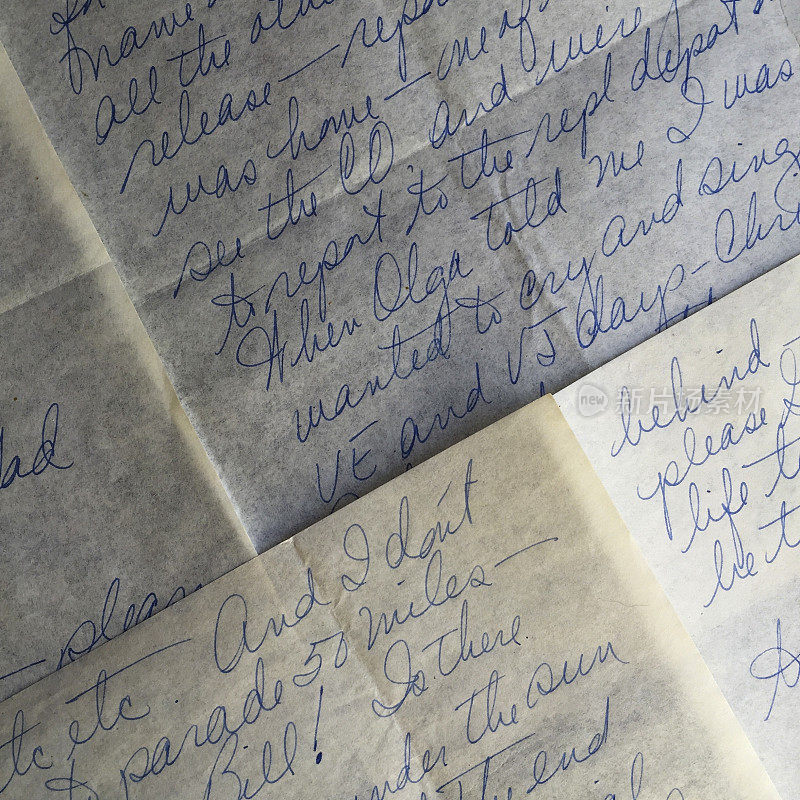 name
all the
release — rep
was home — one of
see the CO and were
to report to the repl depot
When Olga told me I was
wanted to cry and sing
VE and VJ days — Chri
dad
— plea
behind —
please I
life t
be t
etc etc — And I don't
to parade 50 miles —
Bill! Is there
under the sun
the end
new 新片场素材